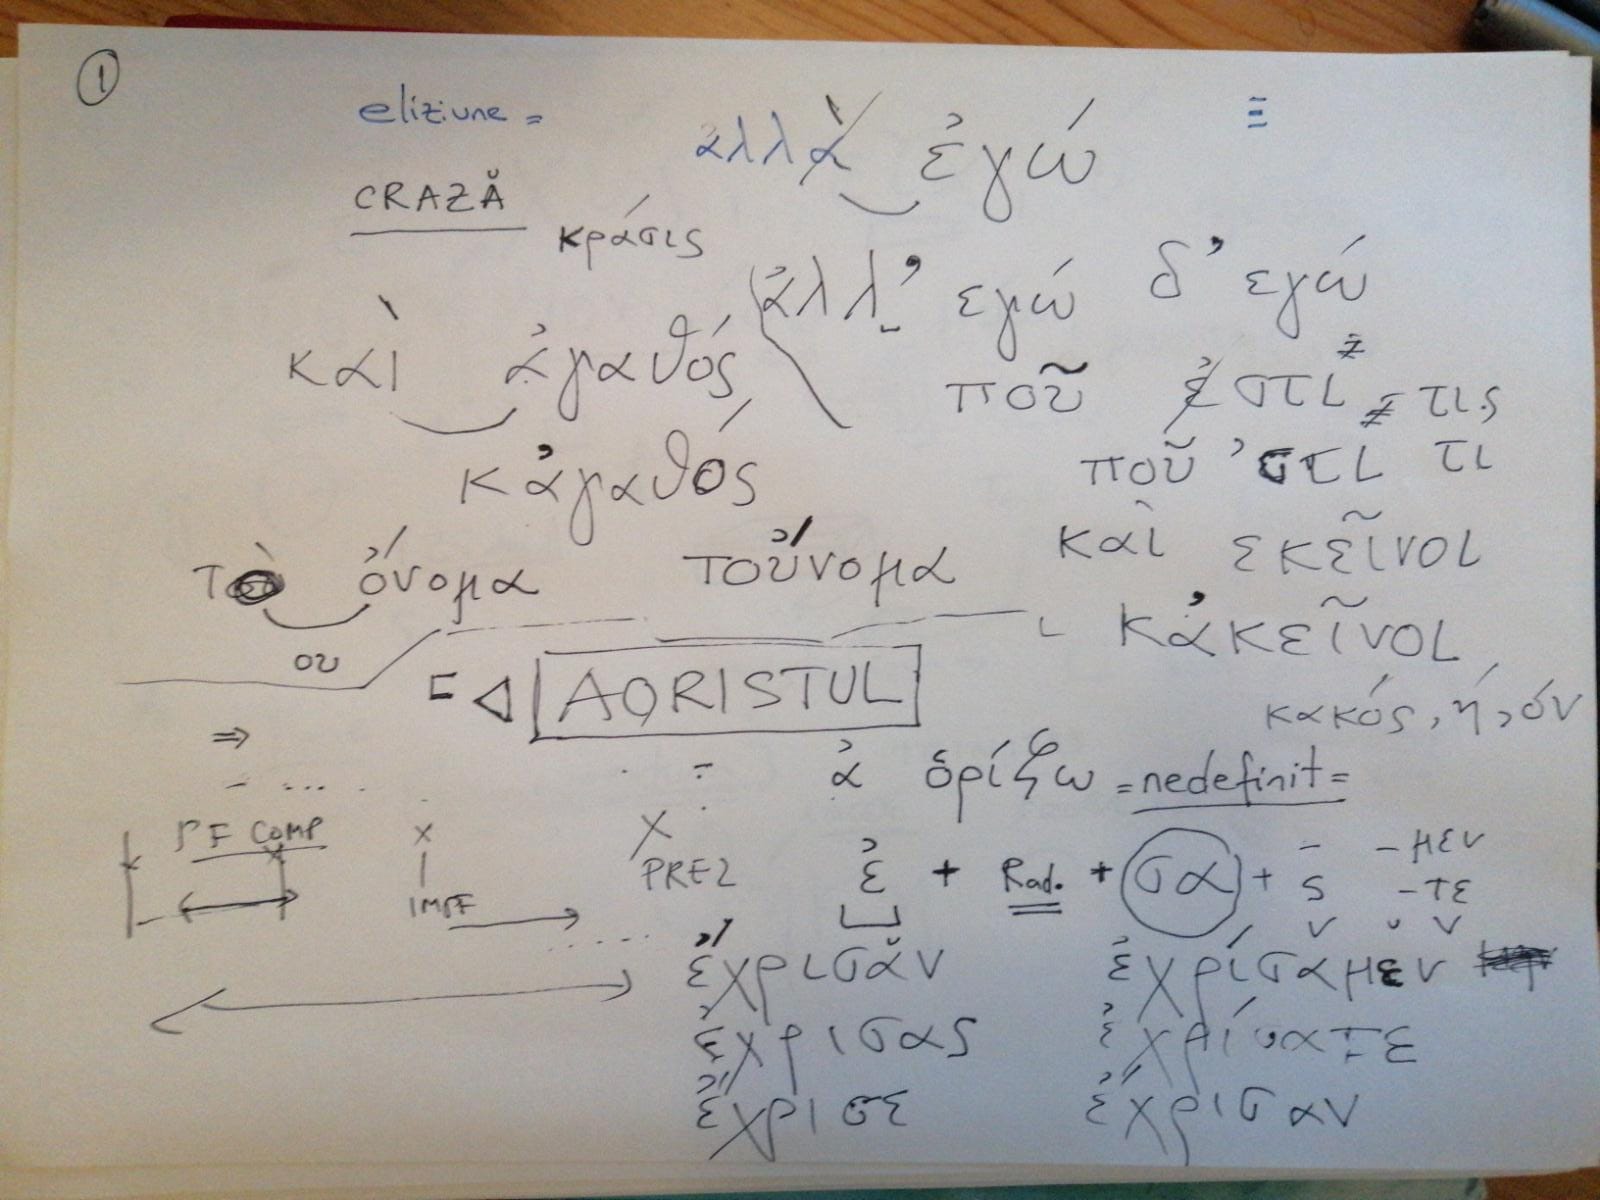 1
eliziune = ἀλλὰ ἐγώ
CRAZĂ κράσις
ἀλλ’ εγώ δ’ εγώ
καὶ ἀγαθός
ποῦ ἐστι τις
κἀγαθός
ποῦ ’στι τι
καὶ εκεῖνοι
το ὄνομα τοὔνομα
ου
κἀκεῖνοι
AORISTUL
κακός, ή, όν
ἀ ὁρίζω = nedefinit =
PF COMP x X
IMPF PREZ
ἐ + Rad. + σα + – – μεν
ς – τε
ν
ἔχρισαν ἐχρίσαμεν
ἔχρισας ἐχρίσατε
ἔχρισε ἔχρισαν